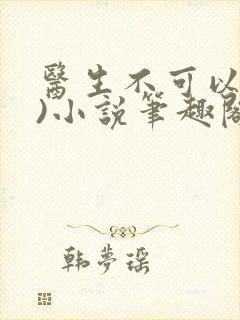 醫生不可以
)小説筆趣閣
韩夢瑶